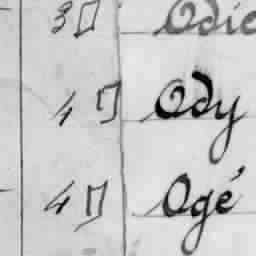 3 Odie
4 Ody
4 Ogé